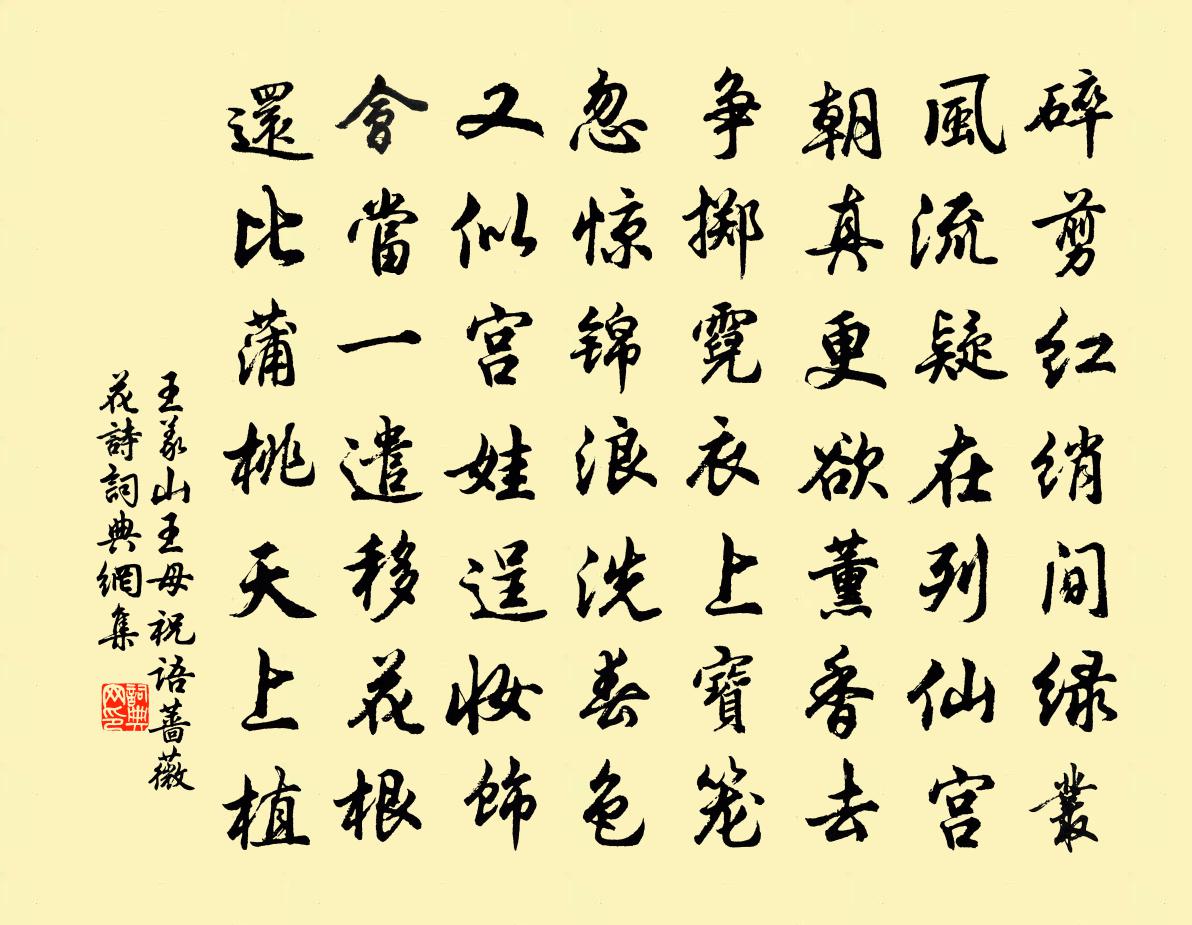 碎剪红绡间绿叢
風流疑在列仙宫
朝真更欲薰香去
争掷霓衣上寶笼
忽惊锦浪洗春色
又似宫娃逞妆饰
會當一遣移花根
還比蒲桃天上植
王義山王母祝语薔薇
花詩詞典網集
詞典网印